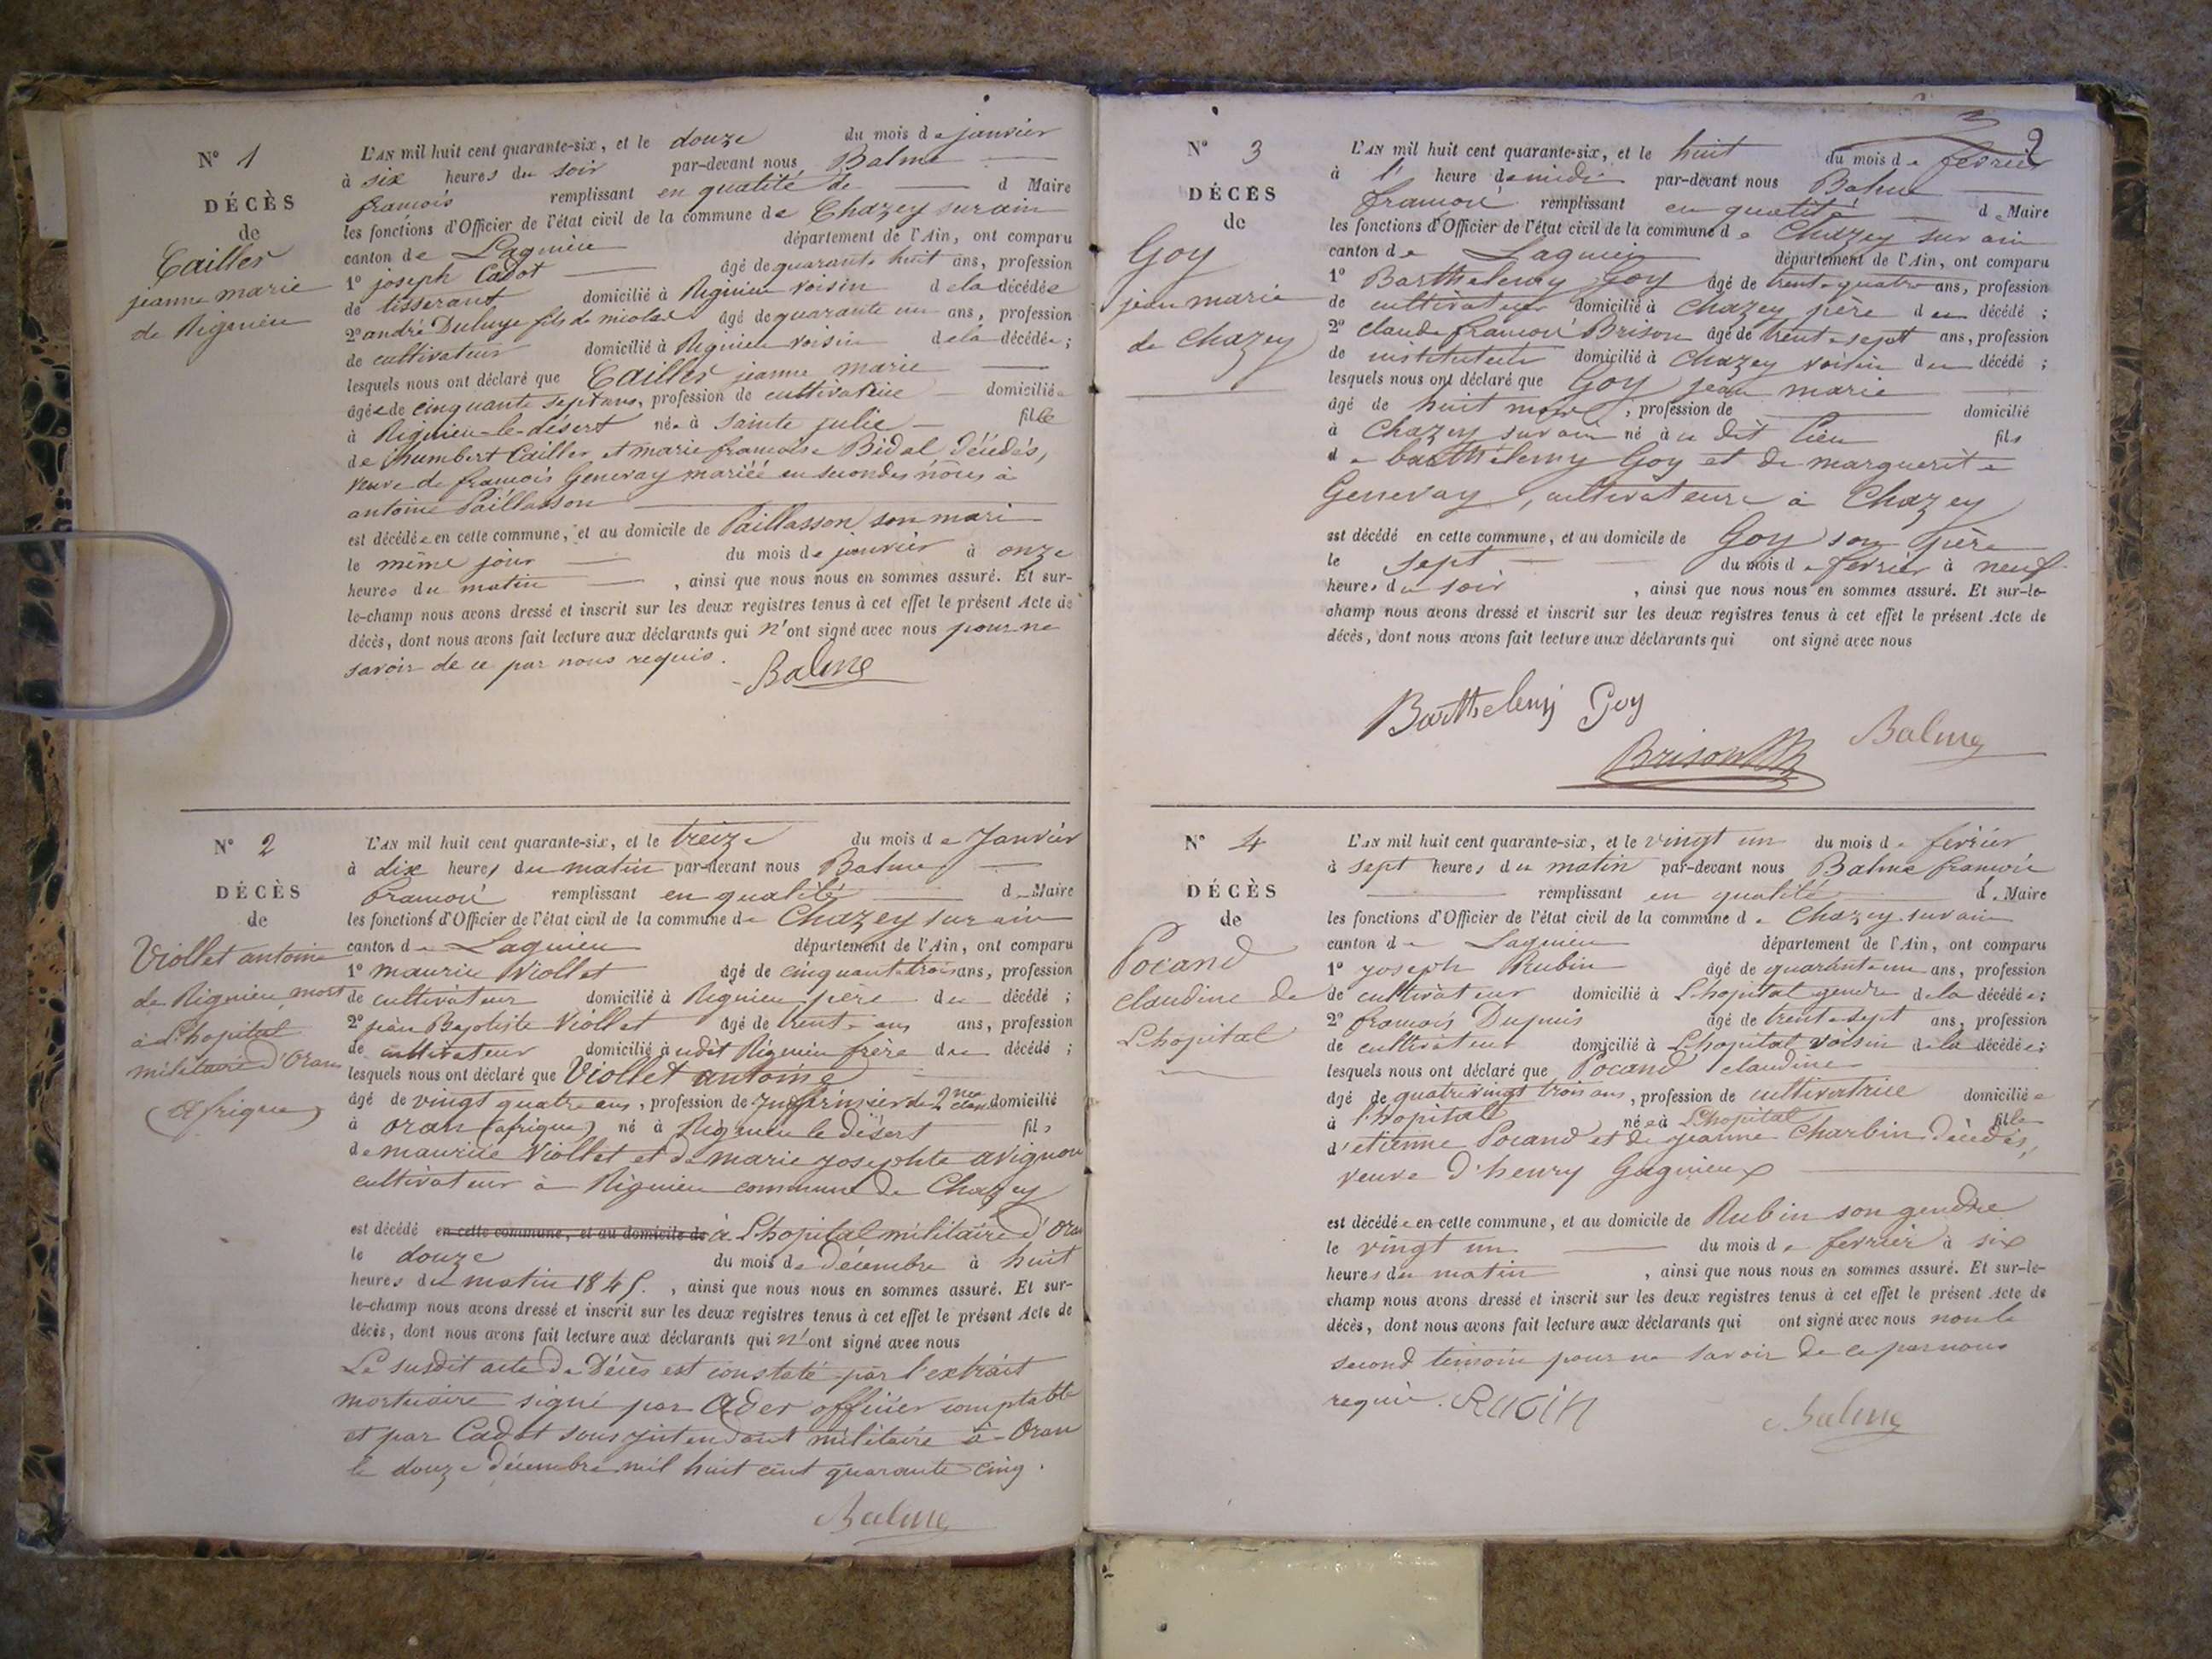 N° 1
DÉCÈS
de
Cailler
jeanne marie
de Rigneieu
L'AN mil huit cent quarante-six, et le douze du mois de janvier
à six heures du soir par-devant nous Balme
francois remplissant en qualité de d Maire
les fonctions d'Officier de l'état civil de la commune de Chazey sur ain
canton de Lagnieu département de l'Ain, ont comparu
1° joseph Cadot âgé de quarante huit ans, profession
de tisserant domicilié à Rignieu voisin de la décédée
2° andré fils de nicolas âgé de quarante un ans, profession
de cultivateur domicilié à Rignieu voisin de la décédée;
lesquels nous ont déclaré que Cailler jeanne marie
âgée de cinquante sept ans, profession de cultivatrice domiciliée
à Rignieu-le-désert née à Sainte julie fille
de humbert Cailler et marie francoise Bidal décédés,
veuve de francois Genevay mariéé en secondes noces à
antoine Paillasson
est décédée en cette commune, et au domicile de Paillasson son mari
le même jour du mois de janvier à onze
heures du matin , ainsi que nous nous en sommes assuré. Et sur-
le-champ nous avons dressé et inscrit sur les deux registres tenus à cet effet le présent Acte de
décès, dont nous avons fait lecture aux déclarants qui n'ont signé avec nous pour ne
savoir de ce par nous requis.
Balme
N° 2
DÉCÈS
de
Viollet antoine
de Rignieu mort
à L'hopital
militaire d'Oran
(afrique)
L'AN mil huit cent quarante-six, et le treize du mois de Janvier
à dix heures du matin par-devant nous Balme
francois remplissant en qualité d Maire
les fonctions d'Officier de l'état civil de la commune de Chazey sur ain
canton de Lagnieu département de l'Ain, ont comparu
1° maurice Viollet âgé de cinquante trois ans, profession
de cultivateur domicilié à Rignieu père du décédé;
2° jean Baptiste Viollet âgé de trente ans ans, profession
de cultivateur domicilié à udit Rignieu frère du décédé;
lesquels nous ont déclaré que Viollet antoine
âgé de vingt quatre ans, profession de Infirmier de 2me classe domicilié
à Oran (afrique) né à Rignieu le désert fils
de maurice Viollet et de marie josephte avignon
cultivateur à Rignieu commune de Chazey
est décédé en cette commune, et au domicile de à L'hopital militaire d'Oran
le douze du mois de décembre à huit
heures du matin 1845. , ainsi que nous nous en sommes assuré. Et sur-
le-champ nous avons dressé et inscrit sur les deux registres tenus à cet effet le présent Acte de
décès, dont nous avons fait lecture aux déclarants qui n'ont signé avec nous
Le susdit acte de Décès est constaté par l'extrait
mortuaire signé par Ader officier comptable
et par Cadot sous jntendant militaire à Oran
le douze décembre mil huit cent quarante cinq.
Balme
2
N° 3
DÉCÈS
de
Goy
jean marie
de Chazey
L'AN mil huit cent quarante-six, et le huit du mois de fevrier
à 1' heure de midi par-devant nous Balme
francois remplissant en qualité d Maire
les fonctions d'Officier de l'état civil de la commune de Chazey sur ain
canton de Lagnieu département de l'Ain, ont comparu
1° Barthelemy Goy âgé de trente quatre ans, profession
de cultivateur domicilié à Chazey père du décédé;
2° claude francois Brison âgé de trente sept ans, profession
de instituteur domicilié à Chazey voisin du décédé;
lesquels nous ont déclaré que Goy jean marie
âgé de huit mois, profession de domicilié
à Chazey sur ain né à ce dit lieu fils
de barthélemy Goy et de marguerite
Genevay, cultivateurs à Chazey
est décédé en cette commune, et au domicile de Goy son père
le sept du mois de fevrier à neuf
heures du soir , ainsi que nous nous en sommes assuré. Et sur-le-
champ nous avons dressé et inscrit sur les deux registres tenus à cet effet le présent Acte de
décès, dont nous avons fait lecture aux déclarants qui ont signé avec nous
Barthelemy Goy
Brison
Balme
N° 4
DÉCÈS
de
Pocand
claudine de
L'hopital
L'AN mil huit cent quarante-six, et le vingt un du mois de février
à sept heures du matin par-devant nous Balme francois
remplissant en qualité d Maire
les fonctions d'Officier de l'état civil de la commune de Chazey sur ain
canton de Lagnieu département de l'Ain, ont comparu
1° joseph Rubin âgé de quarante un ans, profession
de cultivateur domicilié à L'hopital gendre de la décédée;
2° francois Dupuis âgé de trente sept ans, profession
de cultivateur domicilié à L'hopital voisin de la décédée;
lesquels nous ont déclaré que Pocand claudine
âgé de quatre vingt trois ans, profession de cultivatrice domiciliée
à L'hopital née à L'hopital fille
d'etienne Pocand et de jeanne Charbin décédés,
veuve d'henry Gagnieux
est décédée en cette commune, et au domicile de Rubin son gendre
le vingt un du mois de fevrier à six
heures du matin , ainsi que nous nous en sommes assuré. Et sur-le-
champ nous avons dressé et inscrit sur les deux registres tenus à cet effet le présent Acte de
décès, dont nous avons fait lecture aux déclarants qui ont signé avec nous non le
second témoin pour ne savoir de ce par nous
requis. Rubin
Balme